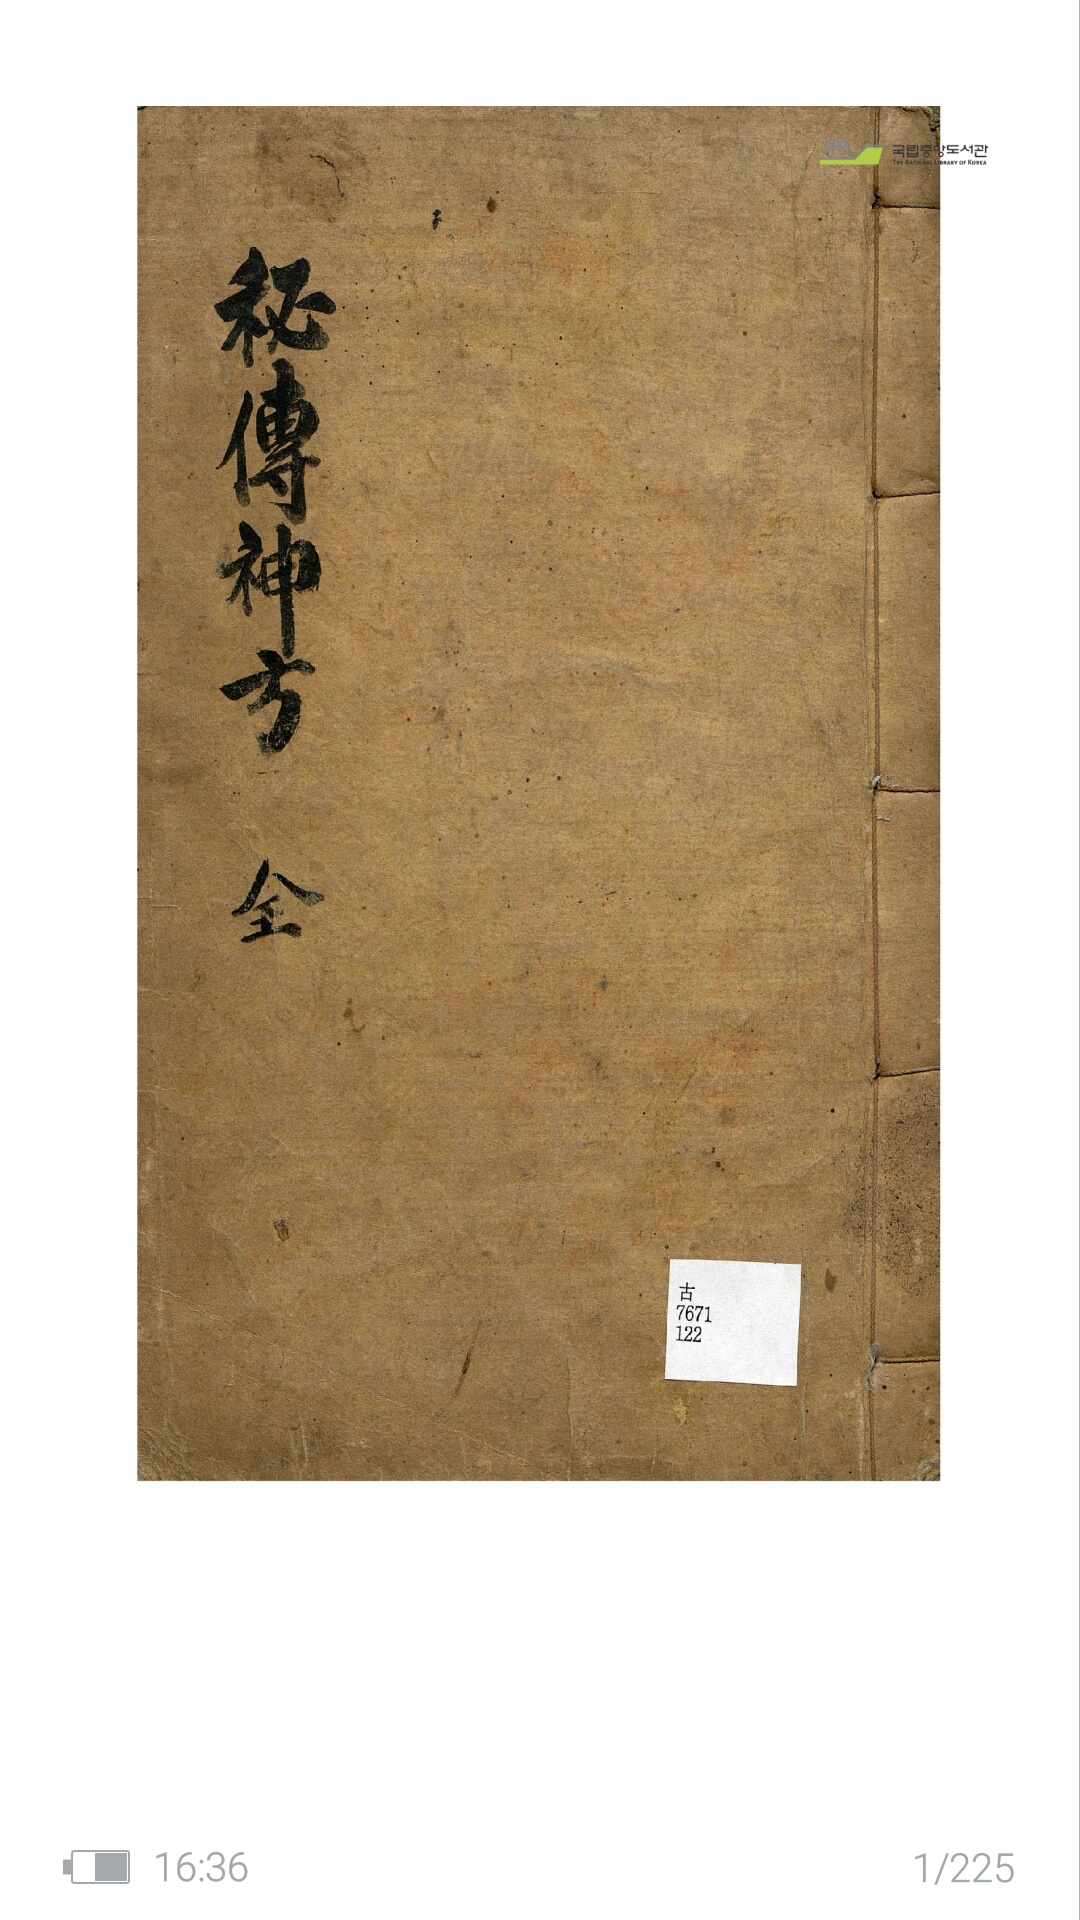 국립중앙도서관
THE NATIONAL LIBRARY OF KOREA
秘傳神方 全
古
7671
122
16:36
1/225